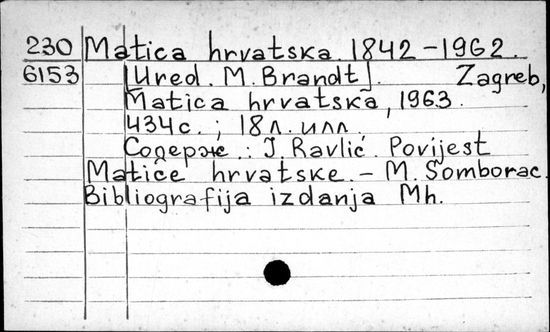 230 Matica hrvatska 1842-1962.
6153 [Ured. M. Brandt]. Zagreb,
Matica hrvatska, 1963.
434с.; 18л. илл.
Содерж.: J. Ravlić. Povijest
Matice hrvatske. - M. Somborac.
Bibliografija izdanja Mh.